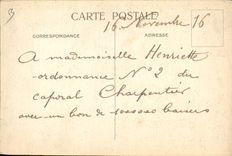 CARTE POSTALE
16 Novembre 16
CORRESPONDANCE
ADRESSE
A mademoiselle Henriette
ordonnance N° 2 du
caporal Charpentier
avec un bon de baisers